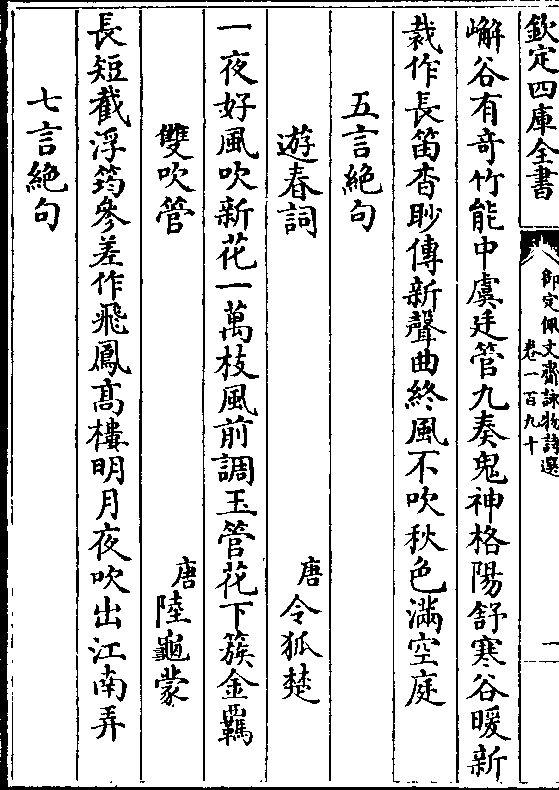 欽定四庫全書
御定佩文齋詠物詩選
卷一百九十
一
嶰谷有竒竹能中虞廷管九奏鬼神格陽舒寒谷暖新
裁作長笛杳眇傳新聲曲終風不吹秋色滿空庭
五言絶句
遊春詞
唐令狐楚
一夜好風吹新花一萬枝風前調玉管花下簇金羈
雙吹管
唐陸龜蒙
長短截浮筠參差作飛鳳髙樓明月夜吹出江南弄
七言絶句